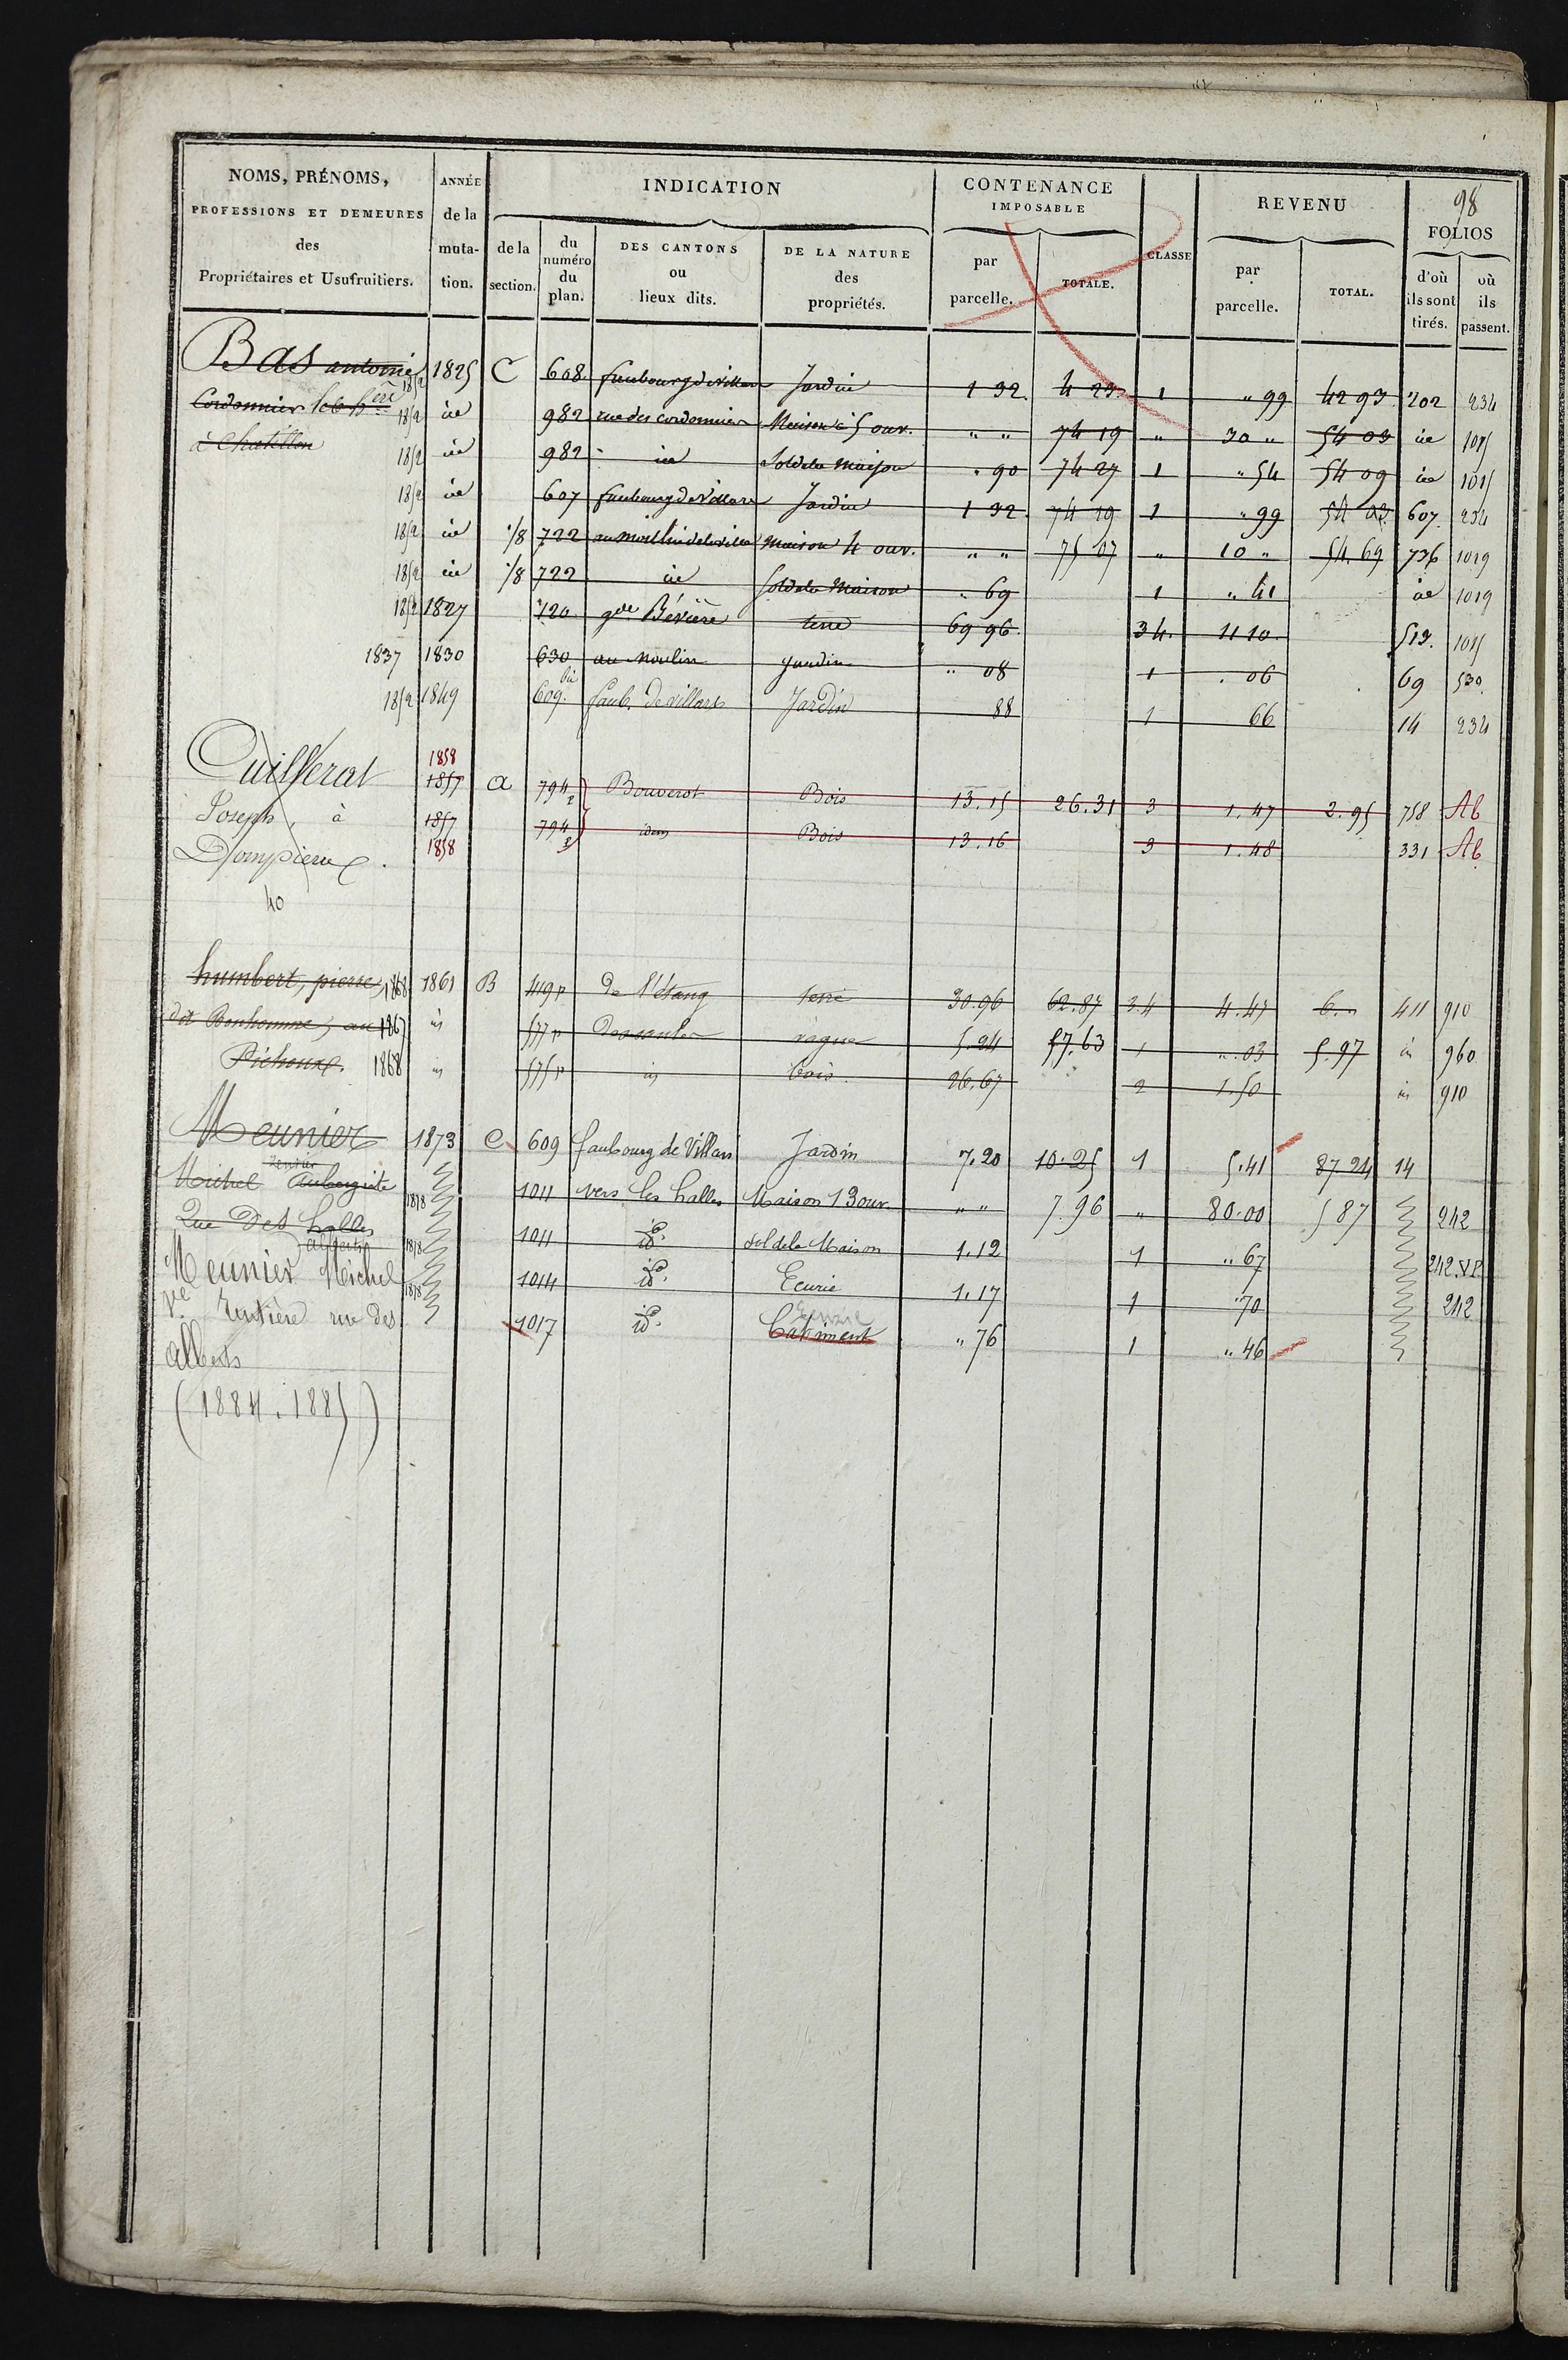 98
NOMS, PRÉNOMS, PROFESSIONS ET DEMEURES des Propriétaires et Usufruitiers.
ANNÉE de la muta-tion.
INDICATION
de la section.
du numéro du plan.
DES CANTONS ou lieux dits.
DE LA NATURE des propriétés.
CONTENANCE IMPOSABLE
par parcelle.
TOTALE.
CLASSE
REVENU
par parcelle.
TOTAL.
FOLIOS
d'où ils sont tirés.
où ils passent.
Bas antoine 1852 1825 C 608 faubourg de villars Jardin 1 32 4 23 1 " 99 42 93 202 234
Cordonnier 1852 id 982 rue des cordonniers Maison à 5 ouv. " " 74 19 " 30 " 54 03 id 1015
à Chatillon 1852 id 982 id Sol de la Maison " 90 74 27 1 " 54 54 09 id 1015
1852 id 607 faubourg de Villars Jardin 1 32 74 19 1 " 99 54 03 607 234
1852 id 1/8 722 au moulin de la ville Maison 4 ouv. " " 75 07 " 10 " 54.69 736 1019
1852 id 1/8 722 id Sol de la Maison " 69 1 " 41 id 1019
1852 1827 120 gde Bévière terre 69 96 3 4. 11 10 513. 1015
1837 1830 630 au Moulin Jardin " 08 1 . 06 69 530
1852 1849 609 bis faub. de villars Jardin 88 1 66 14 234
Cuillerat 1858 1857 a 794 Bouverot Bois 13.15 26.31 3 1.47 2.95 758 Ab
Joseph, à 1857 794 idem Bois 13.16 3 1.48 331 Ab
Dompierre. 1858
40
humbert, pierre, 1868 1861 B 449 p de l'étang terre 30.96 62.87 3.4 4.47 6. " 411 910
dit Bonhomme, au 1867 id 577 p vague 5.24 57.63 1 ". 03 5.97 id 960
Pichoux. 1868 id 575 p id bois 26.67 2 1.50 id 910
Meunier 1873 C 609 faubourg de Villars Jardin 7.20 10.25 1 5.41 87 24 14
rentier
Michel Aubergiste 1878 1011 vers les halles Maison 13 ouv. " " 7.96 " 80.00 5 87 242
Rue des halles 1878 1011 id. Sol de la Maison 1.12 1 " 67 242.VP
Meunier Michel 1878 1014 id. Ecurie 1.17 1 .70 242
Ve rentière rue des 1017 id. Ecurie Batiment " 76 1 " 46
alberts
(1884.1885)